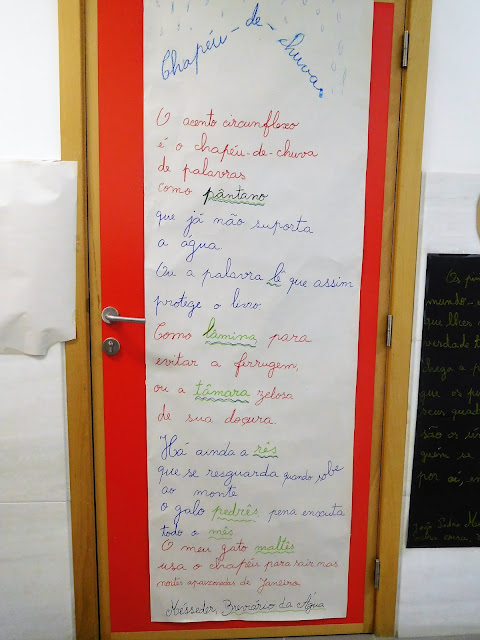 Chapéu-de-chuva
O acento circunflexo
é o chapéu-de-chuva
de palavras
como pântano
que já não suporta
a água.
Ou a palavra lê que assim
protege o livro.
Como lâmina para
evitar a ferrugem,
ou a tâmara zelosa
de sua doçura.
Há ainda a rês
que se resguarda quando sobe
ao monte
o galo pedrês pena enxuta
todo o mês.
O meu gato maltês
usa o chapéu para sair nas
noites apaixonadas de Janeiro.
Mésseder, Breviário da Água
Os
mundo
que lher
verdade
chega a
que os
seus quad
são os
quem se
por aí, en
João Pedro